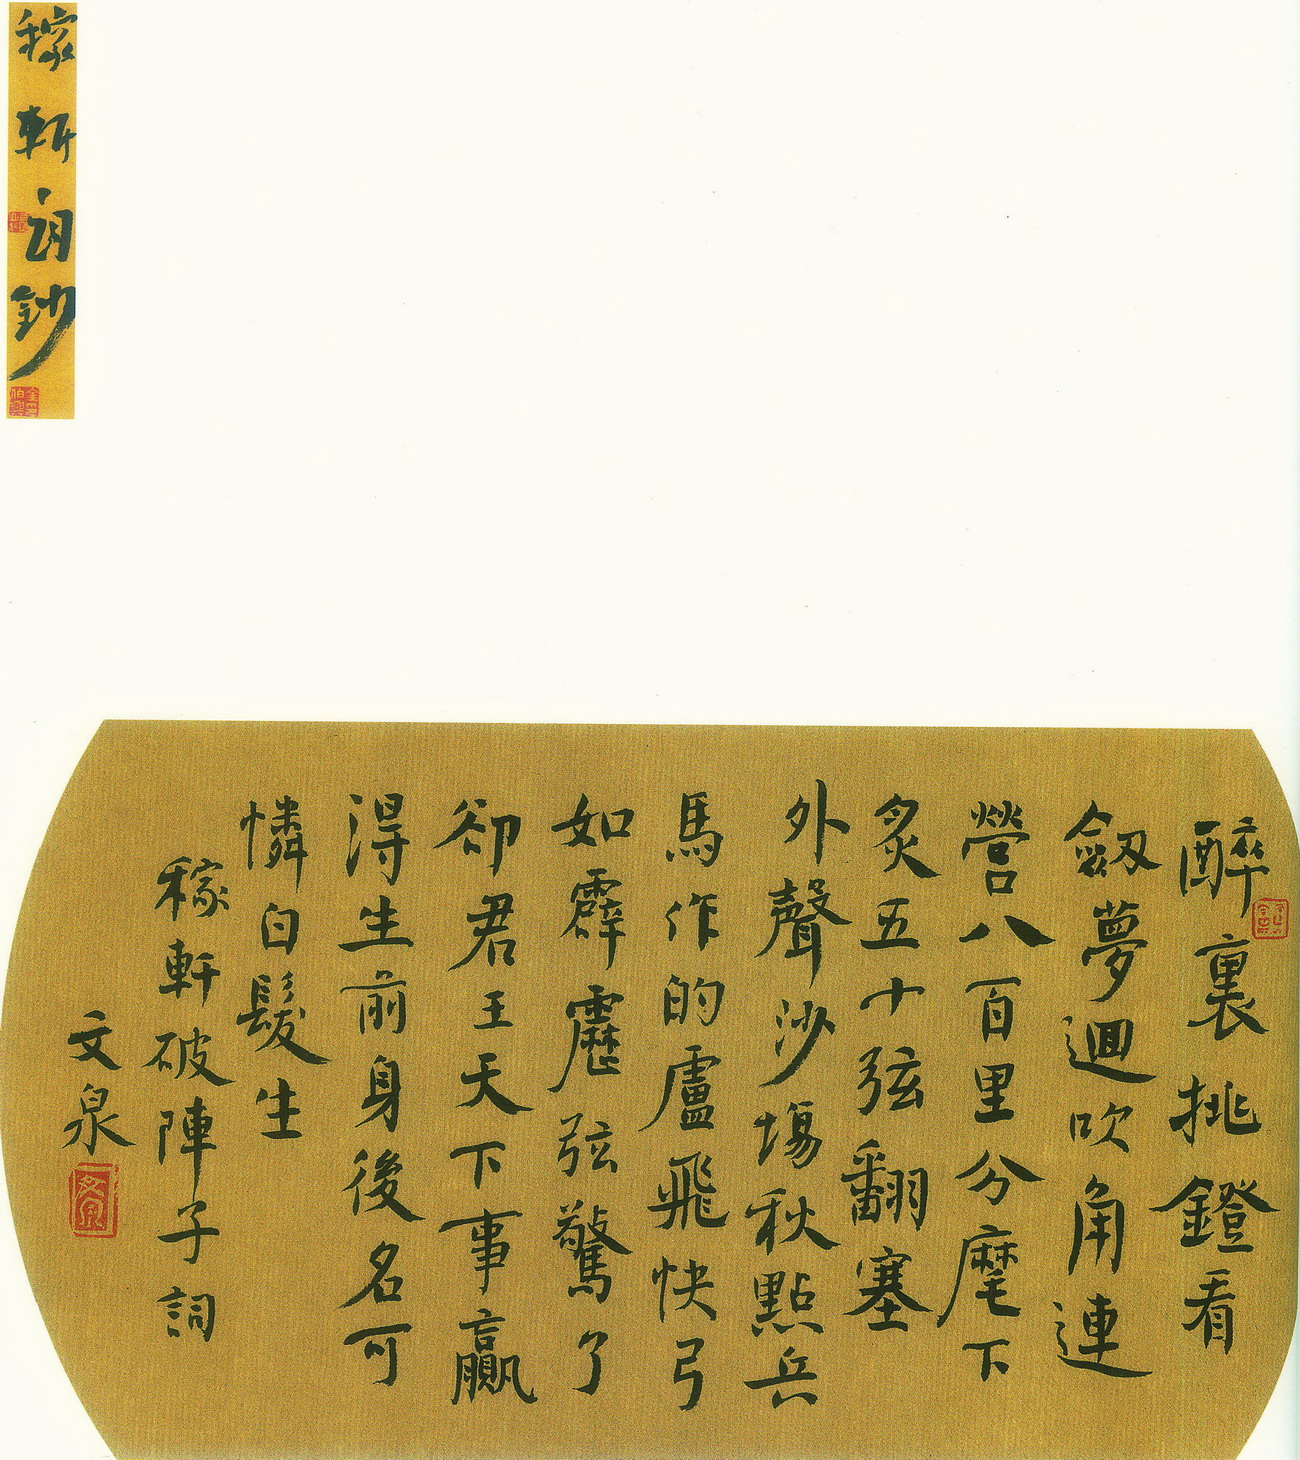 稼軒詞鈔
醉裏挑鐙看
劒夢迴吹角連
營八百里分麾下
炙五十弦翻塞
外聲沙塲秋點兵
馬作的盧飛快弓
如霹靂弦驚了
卻君王天下事贏
得生前身後名可
憐白髮生
稼軒破陣子詞
文泉